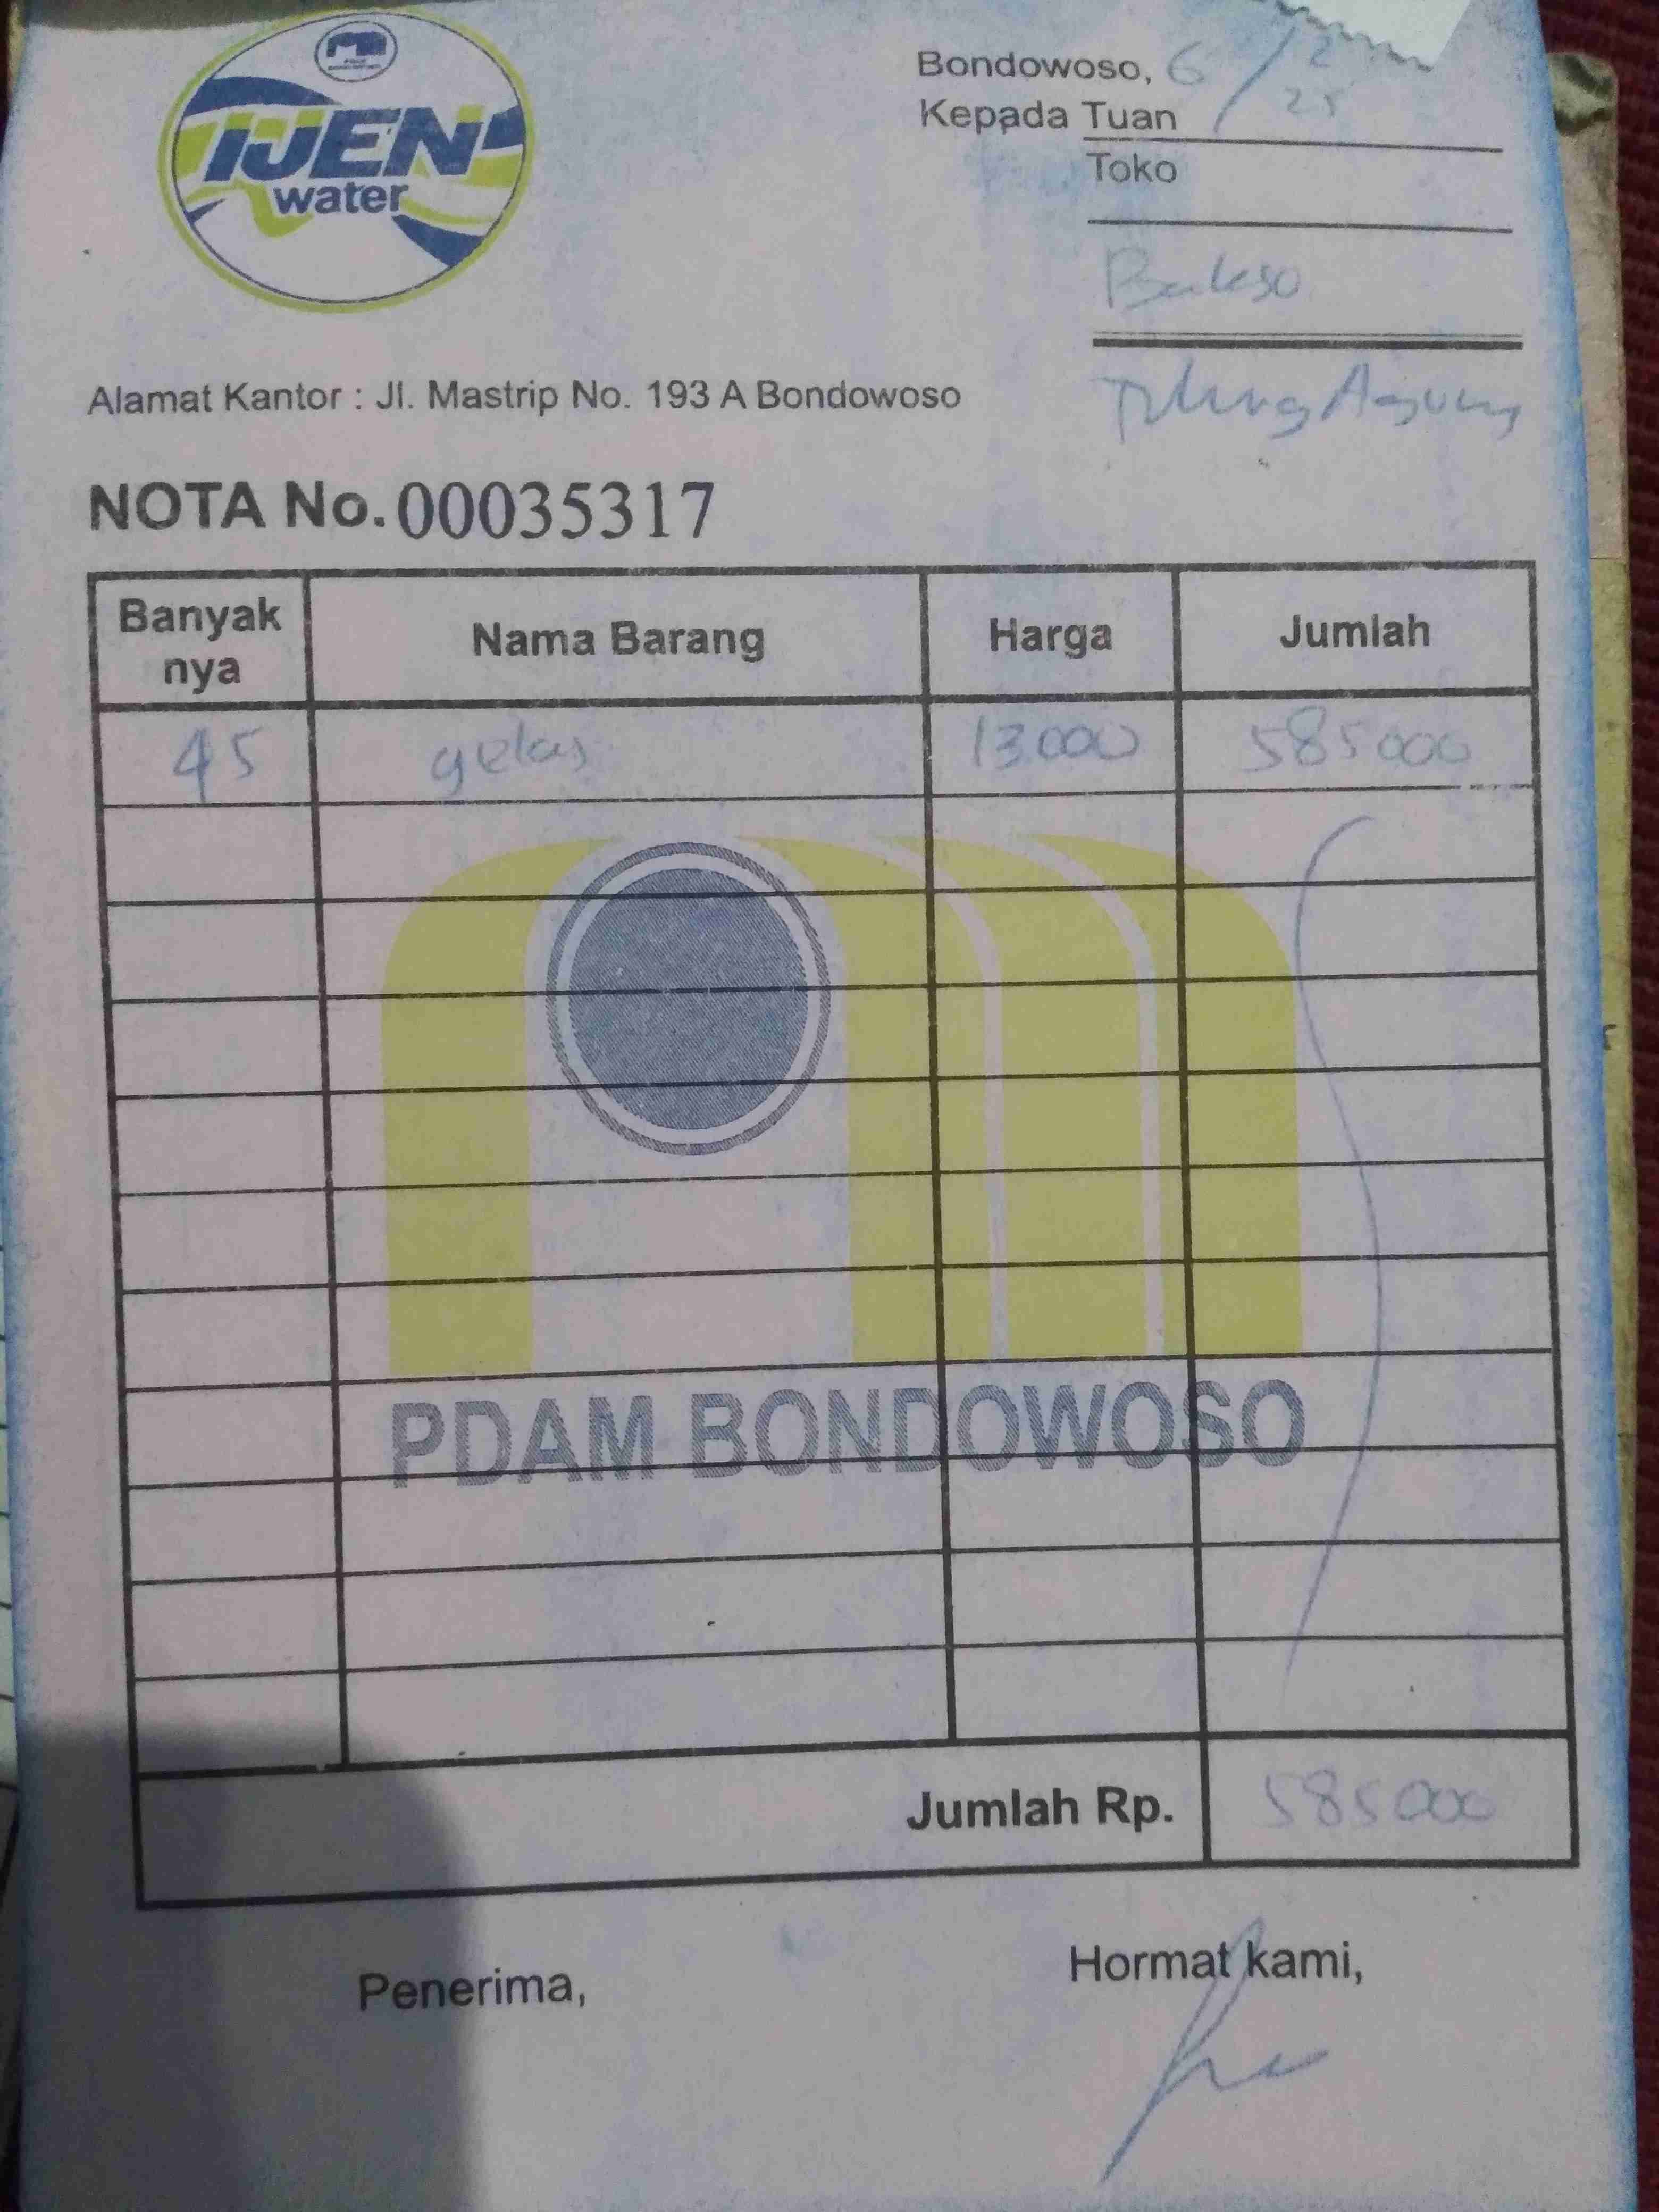 IJEN
water
Bondowoso, 6/2
25
Kepada Tuan
Toko
Bakso
Tulung Agung
Alamat Kantor : Jl. Mastrip No. 193 A Bondowoso
NOTA No. 00035317
Banyak nya Nama Barang Harga Jumlah
45 gelas 13.000 585000
PDAM BONDOWOSO
Jumlah Rp. 585000
Penerima, Hormat kami,